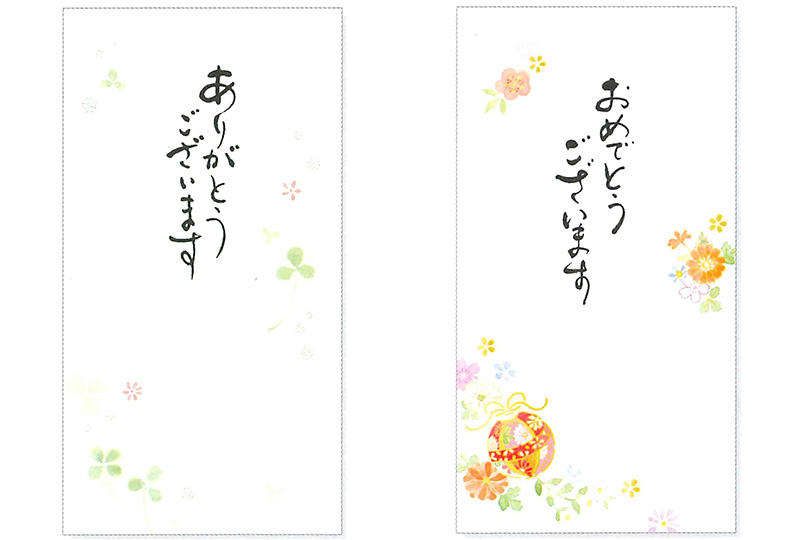 ありがとう
ございます
おめでとう
ございます